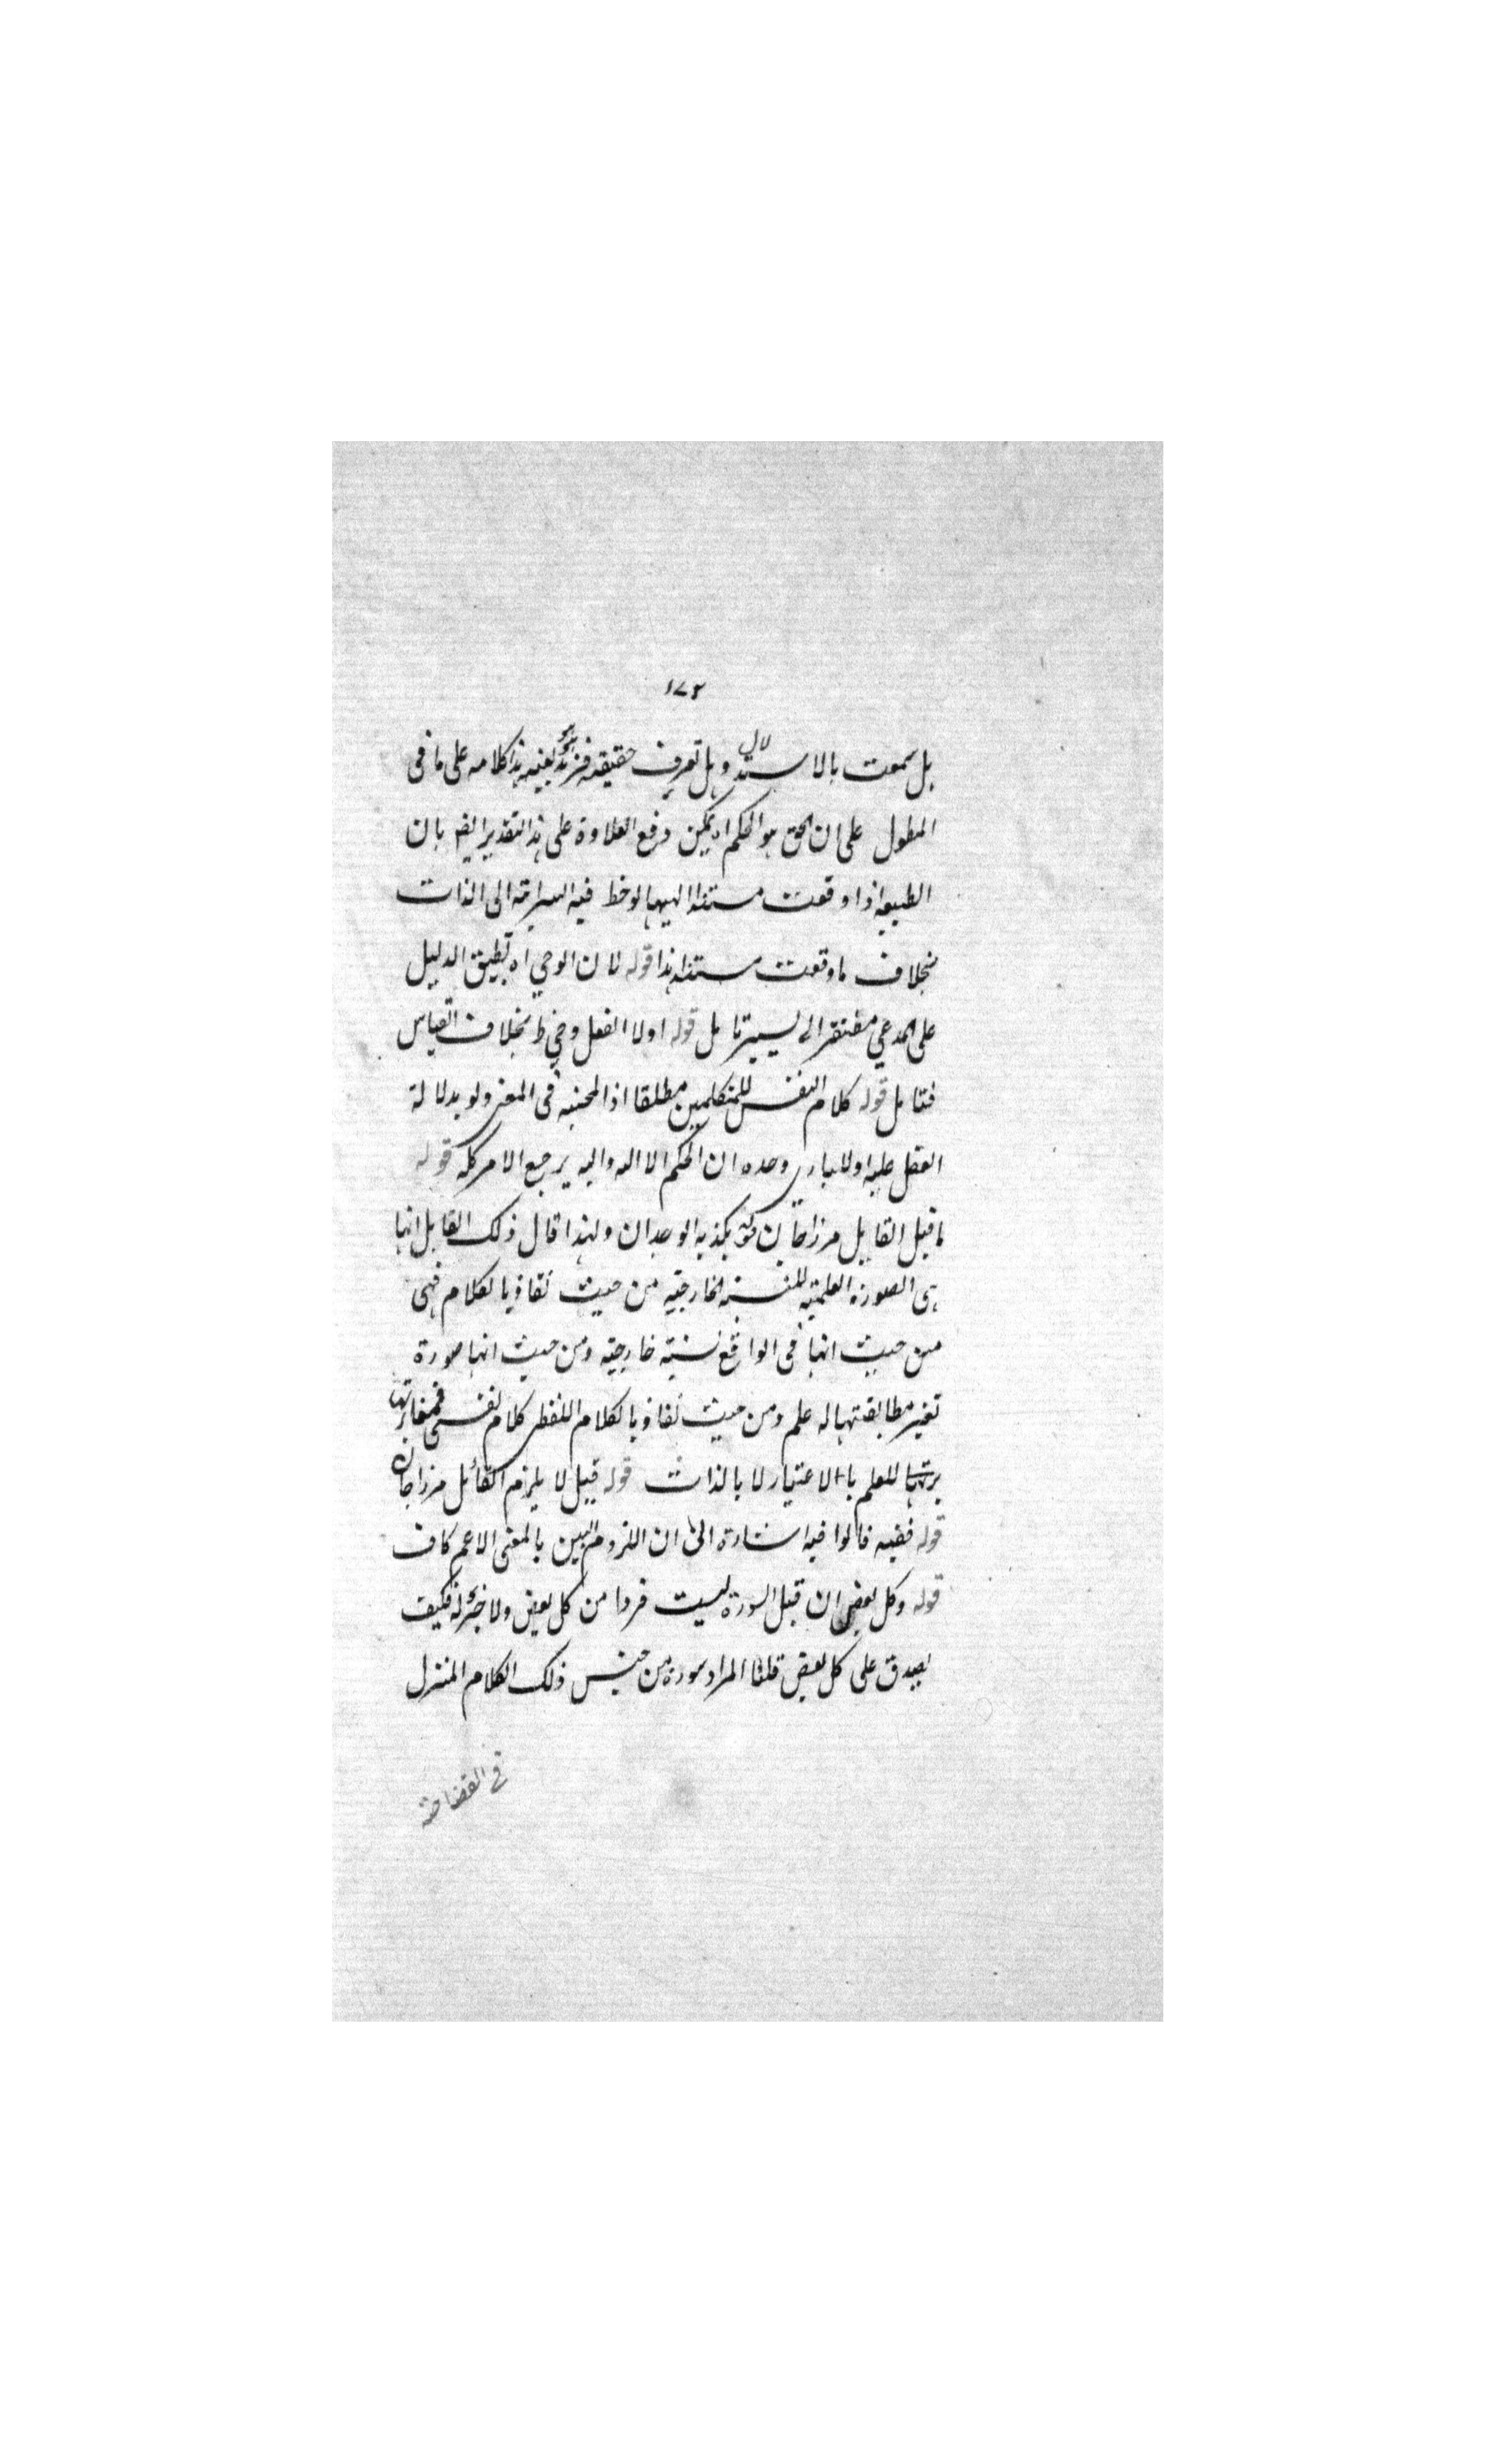 ١٧٢
هل سمعت بالاستدلال وهل تعرف حقيقة هذا كلامه على ما فى
المطول على ان الحق هو الحكم اه يمكن دفع العلاوة على هذا التقدير ايضا بان
الطبيعة اذا وقعت مستندا اليها لوحظ فيه السراية الى الذات
بخلاف ما وقعت مستندا هذا قوله لان الوحي اه تطبيق الدليل
على المدعي مفتقر الى يسير تامل قوله اولا الفعل بخلاف القياس
فتامل قوله كلام النفس للمتكلمين مطلقا اذ فى المعنى ولو بدلالة
العقل عليه اولا وحده ان الحكم الا لله واليه يرجع الامر كله قوله
ما قيل القايل مرزاجان يكذبه الوجدان ولهذا قال ذلك القايل انها
هى الصورة العلمية للنسبة الخارجية من حيث تفاد بالكلام فهى
من حيث انها فى الواقع نسبة خارجية ومن حيث انها صورة
تعتبر مطابقتها له علم ومن حيث تفاد بالكلام اللفظى كلام نفسى فمغايرتها
للعلم بالاعتبار لا بالذات قوله قيل لا يلزم القائل مرزاجان
قوله ففيه قالوا فيه اشارة الى ان اللزوم البين بالمعنى الاعم كاف
قوله وكل بعض ان قيل السورة ليست فردا من كل بعض ولا جزء له فكيف
يصدق على كل بعض قلنا المراد سورة من جنس ذلك الكلام المنزل
فى الفصاحة